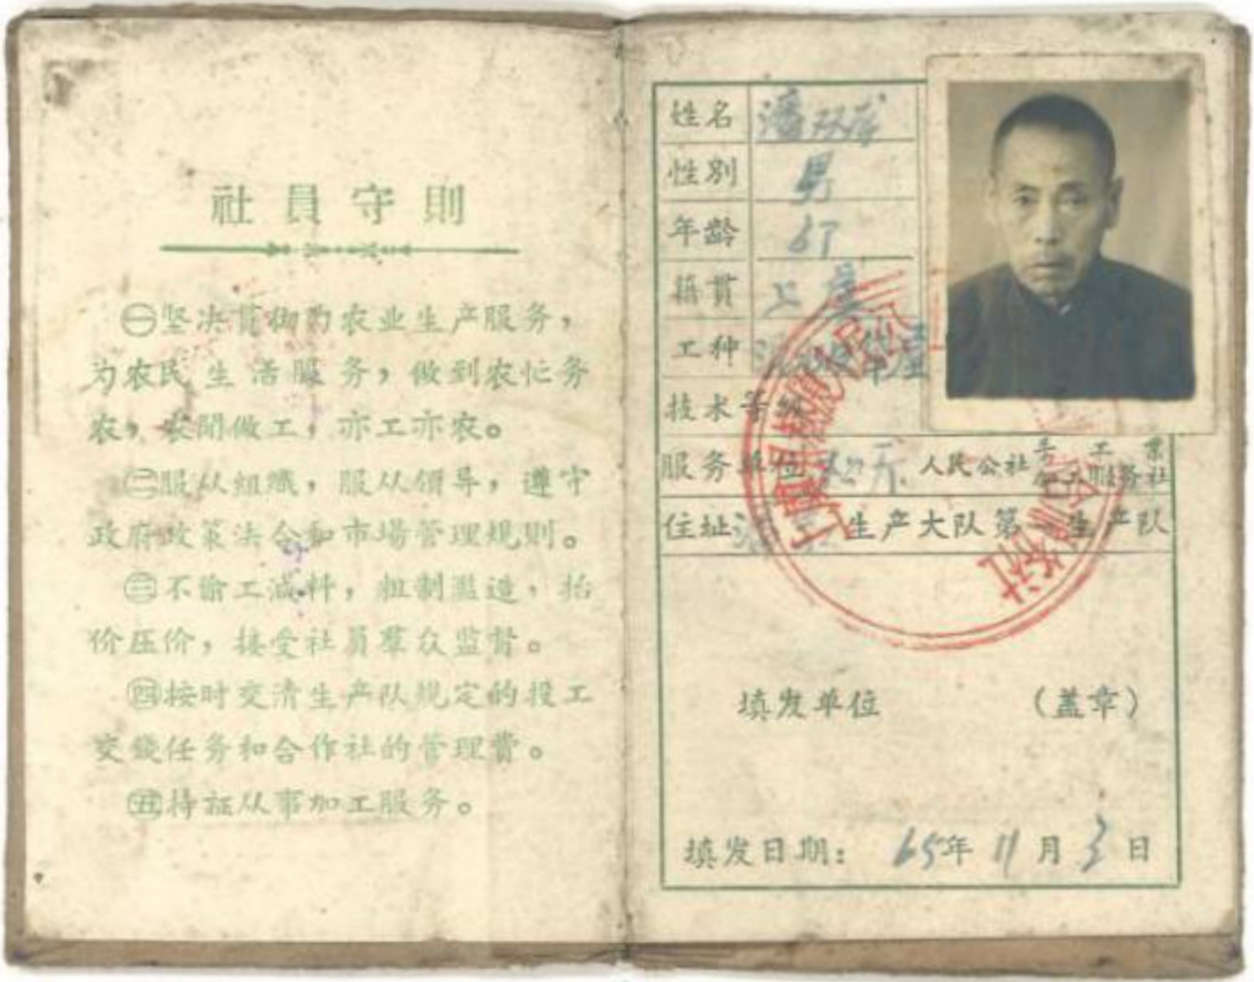 社員守則
㊀坚决貫彻为农业生产服务，
为农民生活服务，做到农忙务
农，农閒做工，亦工亦农。
㊁服从組織，服从領导，遵守
政府政策法令和市場管理規則。
㊂不偷工減料，粗制濫造，抬
价压价，接受社員羣众监督。
㊃按时交清生产队規定的投工
交錢任务和合作社的管理費。
㊄持证从事加工服务。
姓名 潘双
性別 男
年齡 67
籍貫 上虞
工种
技术等級
服务单位 人民公社手工業服务社
住址 生产大队第一生产队
填发单位 （盖章）
填发日期：65年11月3日